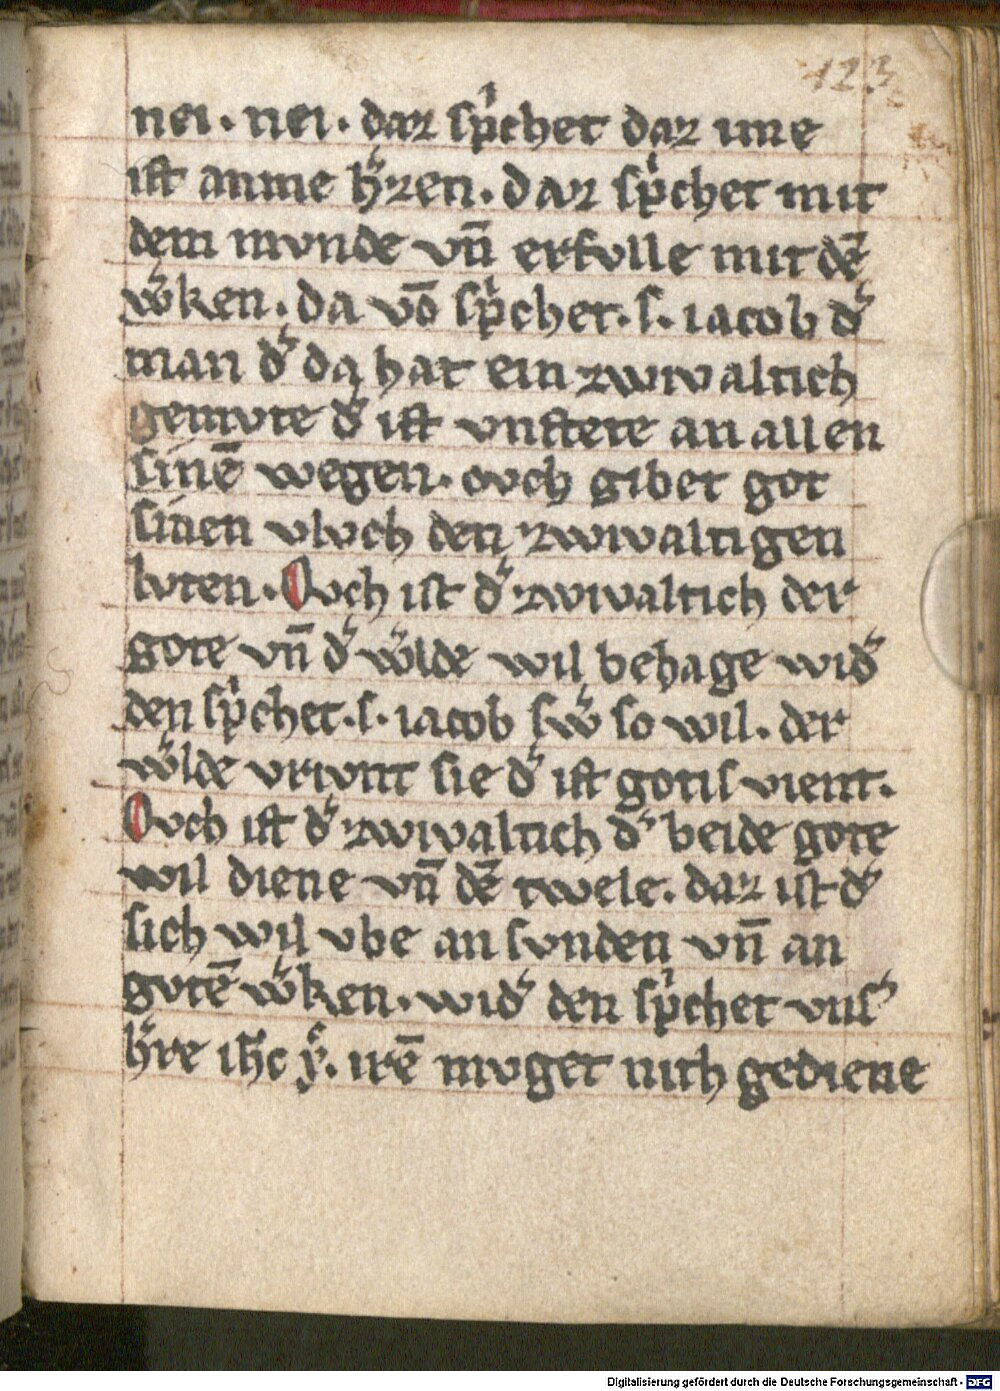 123
nei. nei. daz sp̍chet daz ime
ist anme h̓zen. daz sp̍chet mit
dem mvnde vn̄ erfvlle mit dē
w̓ken. da vō sp̍chet. s. iacob d̓
man d̓ da hat ein zwivaltich
gemvte d̓ ist vnstete an allen
sinē wegen. ovch gibet got
sinen vlvch den zwivaltigen
lvten. Ovch ist d̓ zwivaltich der
gote vn̄ d̓ w̓lde wil behage wid̓
den sp̍chet. s. iacob sw̓ so wil. der
w̓lde vrivnt sie d̓ ist gotis vient.
Ovch ist d̓ zwivaltich d̓ beide gote
wil diene vn̄ dē twele. daz ist d̓
sich wil vbe an svnden vn̄ an
gvtē w̓ken. wid̓ den sp̍chet vns̓
h̓re ih̄c x̓. irē mvget nith gediene
Digitalisierung gefördert durch die Deutsche Forschungsgemeinschaft - DFG